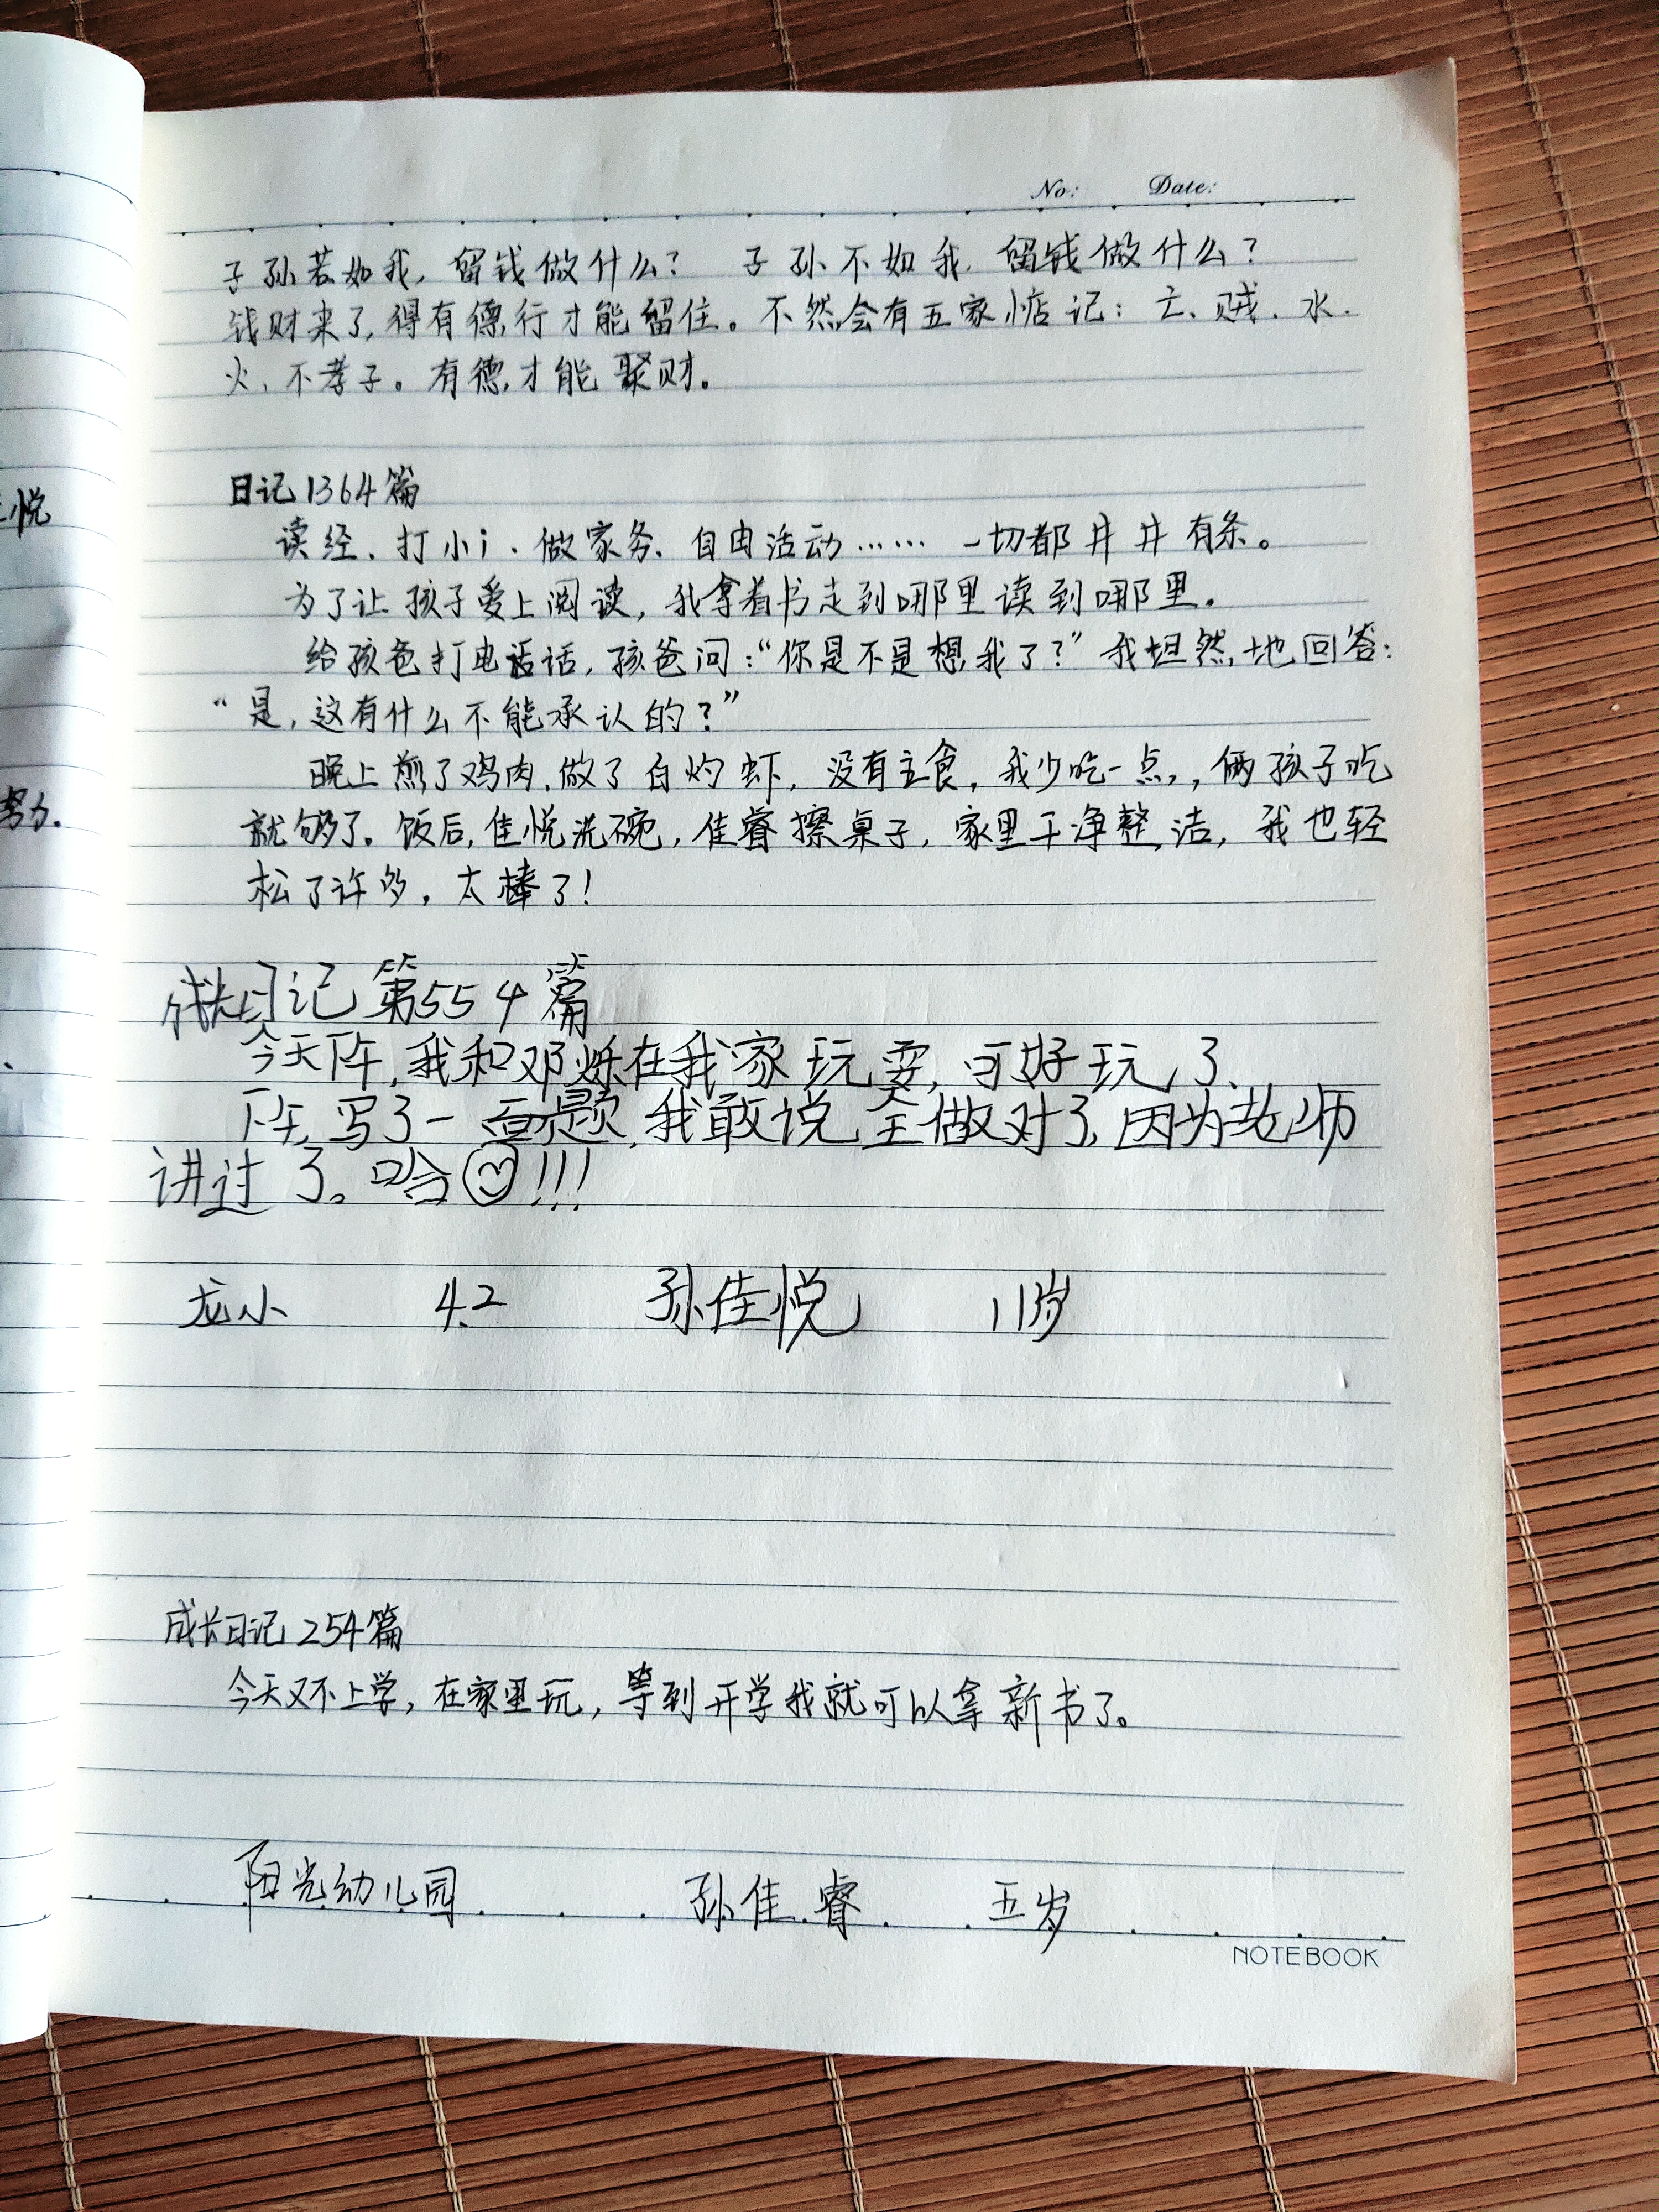 No: Date:
子孙若如我，留钱做什么？ 子孙不如我，留钱做什么？
钱财来了，得有德行才能留住。不然会有五家惦记：亡、贼、水、
火、不孝子。有德，才能聚财。
日记1364篇
读经、打小i、做家务、自由活动…… 一切都井井有条。
为了让孩子爱上阅读，我拿着书走到哪里读到哪里。
给孩爸打电话，孩爸问：“你是不是想我了？”我坦然地回答：
“是，这有什么不能承认的？”
晚上煎了鸡肉，做了白灼虾，没有主食，我少吃一点，，俩孩子吃
就够了。饭后，佳悦洗碗，佳睿擦桌子，家里干净整洁，我也轻
松了许多，太棒了！
成长日记第554篇
今天下午，我和邓烁在我家玩耍，可好玩了、
下午，写了一面题，我敢说全做对了，因为老师
讲过了。哈!!!
龙小 4.2 孙佳悦 11岁
成长日记254篇
今天又不上学，在家里玩，等到开学我就可以拿新书了。
阳光幼儿园 孙佳睿 五岁
NOTEBOOK
悦
努力.